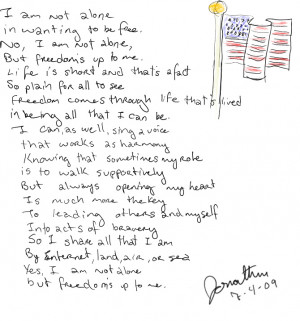 I am not alone
in wanting to be free.
No, I am not alone,
But freedom's up to me.
Life is short and that's a fact
So plain for all to see
Freedom comes through life that's lived
in being all that I can be.
I can, as well, sing a voice
that works as harmony
Knowing that sometimes my role
is to walk supportively
But always opening my heart
Is much more the key
To leading others and myself
Into acts of bravery
So I share all that I am
By Internet, land, air, or sea
Yes, I am not alone
but freedoms up to me.
Jonathan
7-4-09